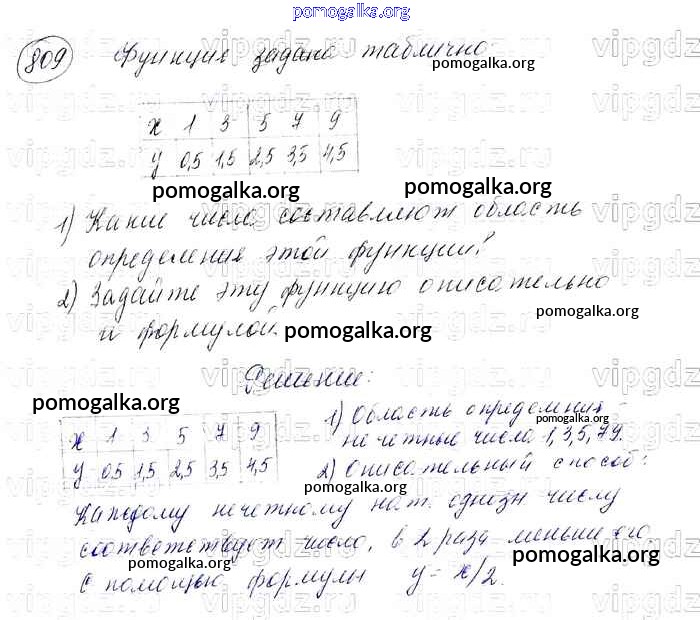 pomogalka.org
809 Функция задана таблично
pomogalka.org
x 1 3 5 7 9
y 0,5 1,5 2,5 3,5 4,5
pomogalka.org
pomogalka.org
1) Какие числа составляют область
определения этой функции?
2) Задайте эту функцию описательно
и формулой.
pomogalka.org
pomogalka.org
Решение:
pomogalka.org
pomogalka.org
x 1 3 5 7 9
y 0,5 1,5 2,5 3,5 4,5
1) Область определения -
нечетные числа 1,3,5,7,9.
pomogalka.org
2) Описательный способ:
pomogalka.org
Каждому нечетному нат. однозн числу
соответствует число, в 2 раза меньше его.
pomogalka.org
pomogalka.org
С помощью формулы y = x/2.